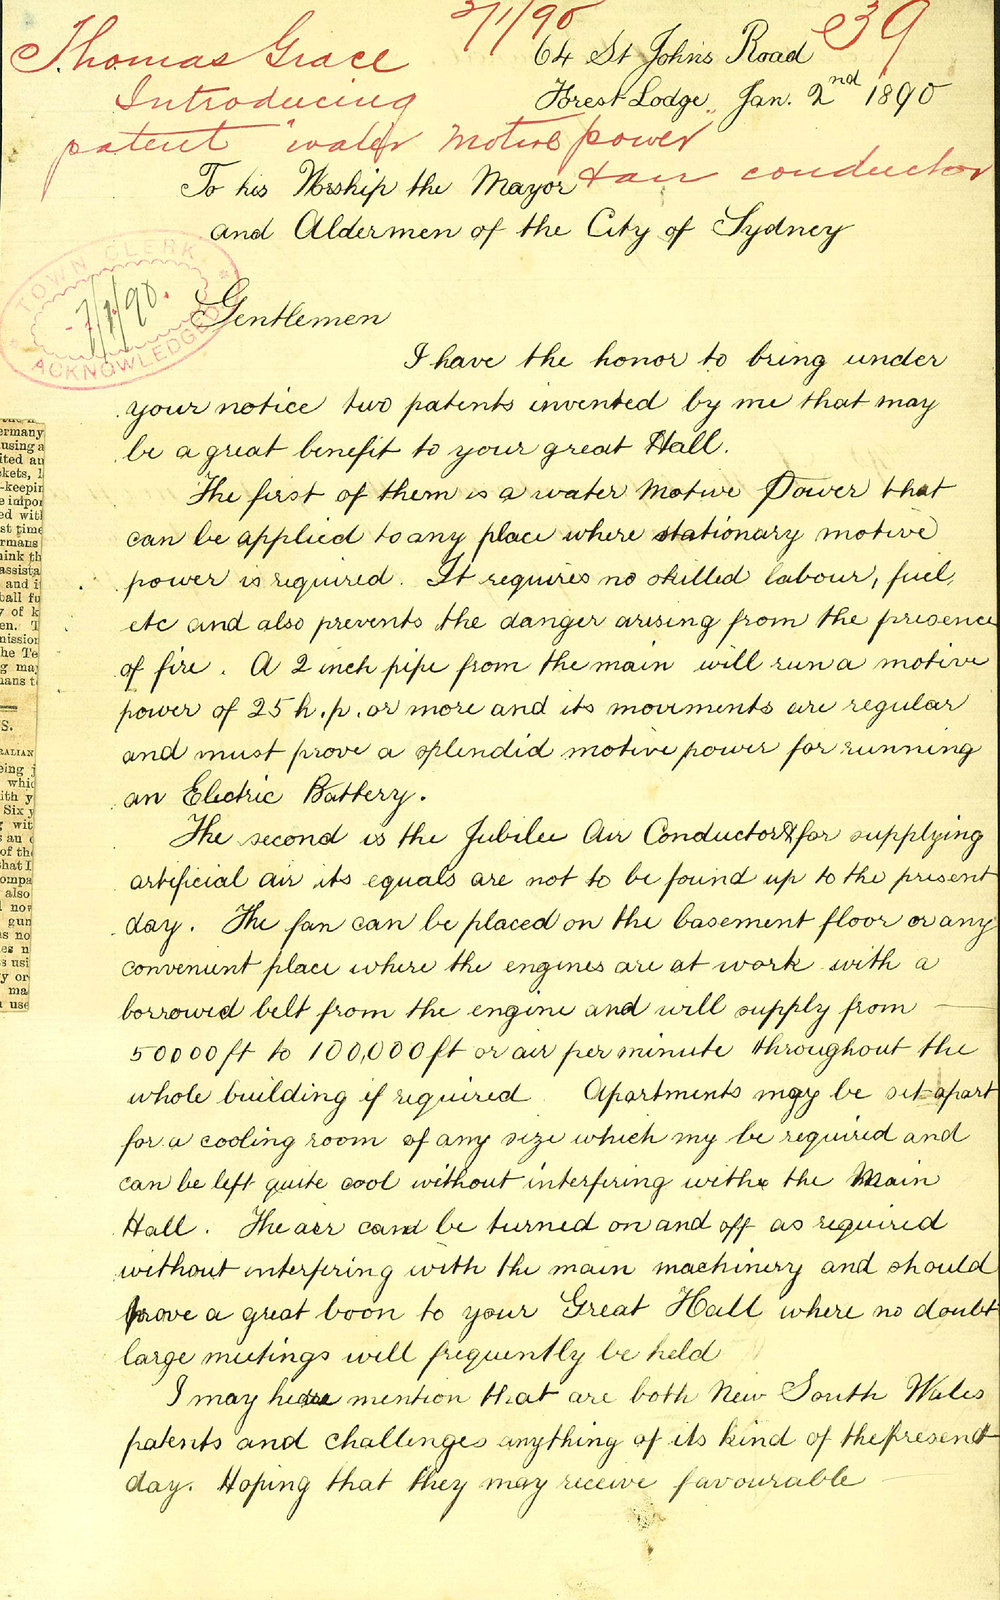 2/1/90
39
Thomas Grace
Introducing
patent "water motive power
& air conductor
64 St John's Road
Forest Lodge, Jan. 2nd 1890
To his Worship the Mayor
and Aldermen of the City of Sydney
TOWN CLERK
7/1/90.
ACKNOWLEDGED
Gentlemen
I have the honor to bring under
your notice two patents invented by me that may
be a great benefit to your great Hall.
The first of them is a water Motive Power that
can be applied to any place where stationary motive
power is required. It requires no skilled labour, fuel,
etc and also prevents the danger arising from the presence
of fire. A 2 inch pipe from the main will run a motive
power of 25 h.p. or more and its movments are regular
and must prove a splendid motive power for running
an Electric Battery.
The second is the Jubilee Air Conductor & for supplying
artificial air its equals are not to be found up to the present
day. The fan can be placed on the basement floor or any
convenient place where the engines are at work with a
borrowed belt from the engine and will supply from
50000 ft to 100,000 ft or air per minute throughout the
whole building if required Apartments may be set apart
for a cooling room of any size which my be required and
can be left quite cool without interfiring with the Main
Hall. The air can be turned on and off as required
without interfiring with the main machinery and should
prove a great boon to your Great Hall where no doubt
large meetings will frequently be held
I may here mention that are both New South Wales
patents and challenges anything of its kind of the present
day. Hoping that they may receive favourable
ermany
using a
ited au
kets, l
-keepin
e impor
ed with
st time
rmans
hink th
assista
and i
ball fu
y of k
en. T
mission
he Te
g may
mans t
S.
RALIAN
eing j
whic
ith y
Six y
g wit
s au
of the
that I
ompa
also
l now
gun
as no
es n
s usi
y or
ma
a use